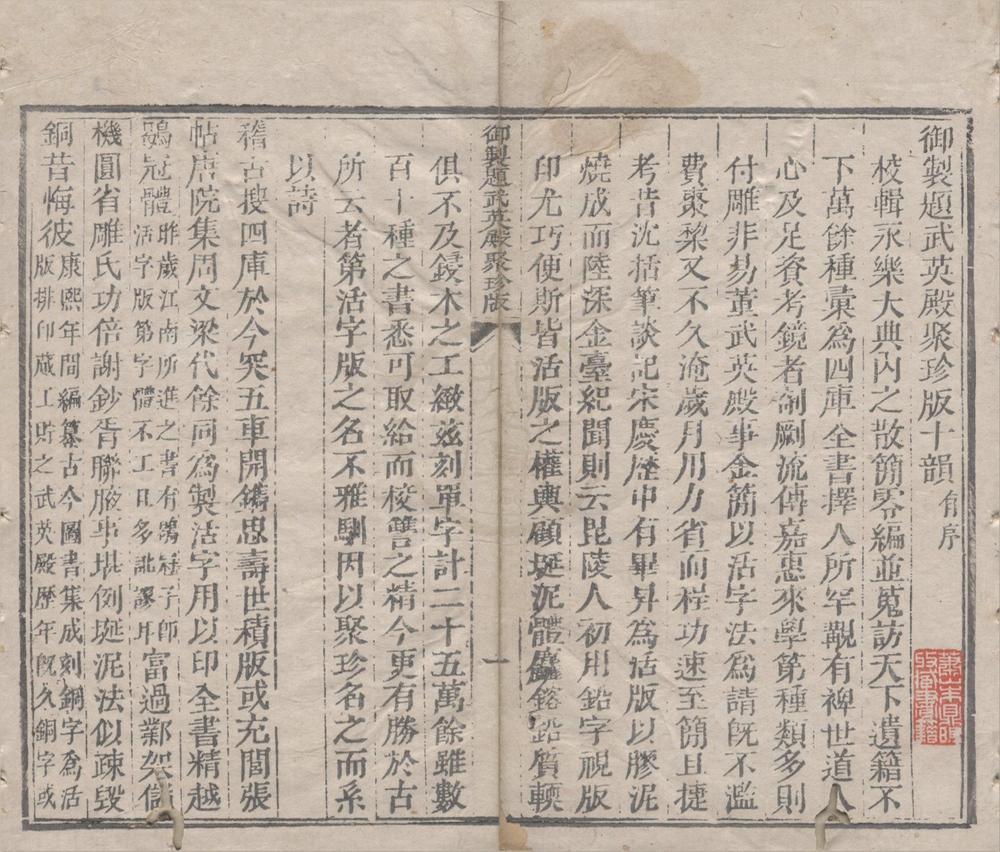 御製題武英殿聚珍版十韻有序
校輯永樂大典內之散簡零編並蒐訪天下遺籍不
下萬餘種彙為四庫全書擇人所罕覯有裨世道人
心及足資考鏡者剞劂流傳嘉惠來學第種類多則
付雕非易董武英殿事金簡以活字法為請既不濫
費棗棃又不久淹歲月用力省而程功速至簡且捷
考昔沈括筆談記宋慶歷中有畢昇為活版以膠泥
燒成而陸深金臺紀聞則云毘陵人初用鉛字視版
印尤巧便斯皆活版之權輿顧埏泥體麤鎔鉛質輭
御製題武英殿聚珍版
一
俱不及鋟木之工緻茲刻單字計二十五萬餘雖數
百十種之書悉可取給而校讐之精今更有勝於古
所云者第活字版之名不雅馴因以聚珍名之而系
以詩
稽古搜四庫於今突五車開鐫思壽世積版或充閭張
帖唐院集周文梁代餘同為製活字用以印全書精越
鶡冠體昨歲江南所進之書有鶡冠子即活字版第字體不工且多訛謬耳富過鄴架儲
機圓省雕氏功倍謝鈔胥聯腋事堪例埏泥法似疎毀
銅昔悔彼康熙年間編纂古今圖書集成刻銅字為活版排印蕆工貯之武英殿歷年既久銅字或